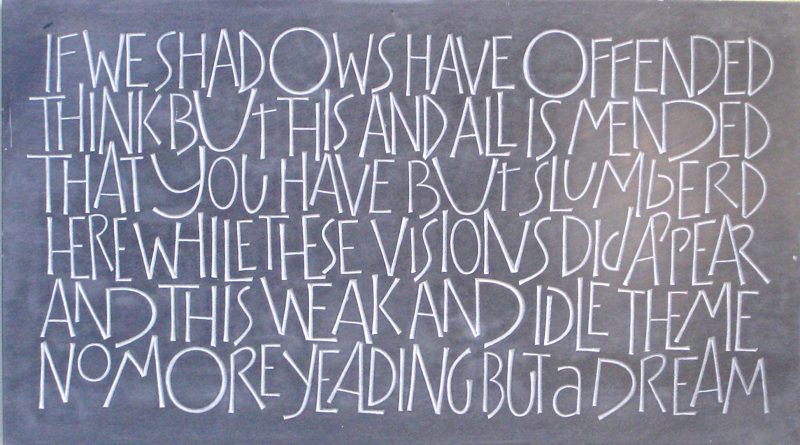 IF WE SHADOWS HAVE OFFENDED
THINK BUt THIS AND ALL IS MENDED
THAT YOU HAVE BUt SLUMbERD
HERE WHILE THESE VISIONS DId APPEAR
AND THIS WEAK AND IDLE THEME
NO MORE YEALDING BUT a DREAM